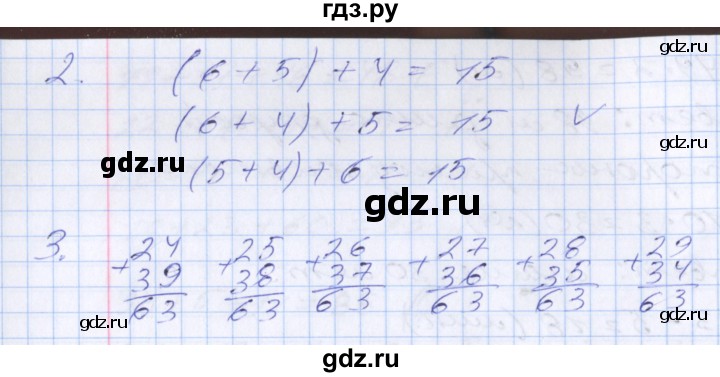 гдз.ру
gdz.ru
2. (6+5)+4=15
(6+4)+5=15 V
gdz.ru
(5+4)+6=15
gdz.ru
3. +24 +25 +26 +27 +28 +29
39 38 37 36 35 34
63 63 63 63 63 63
gdz.ru
gdz.ru
gdz.ru